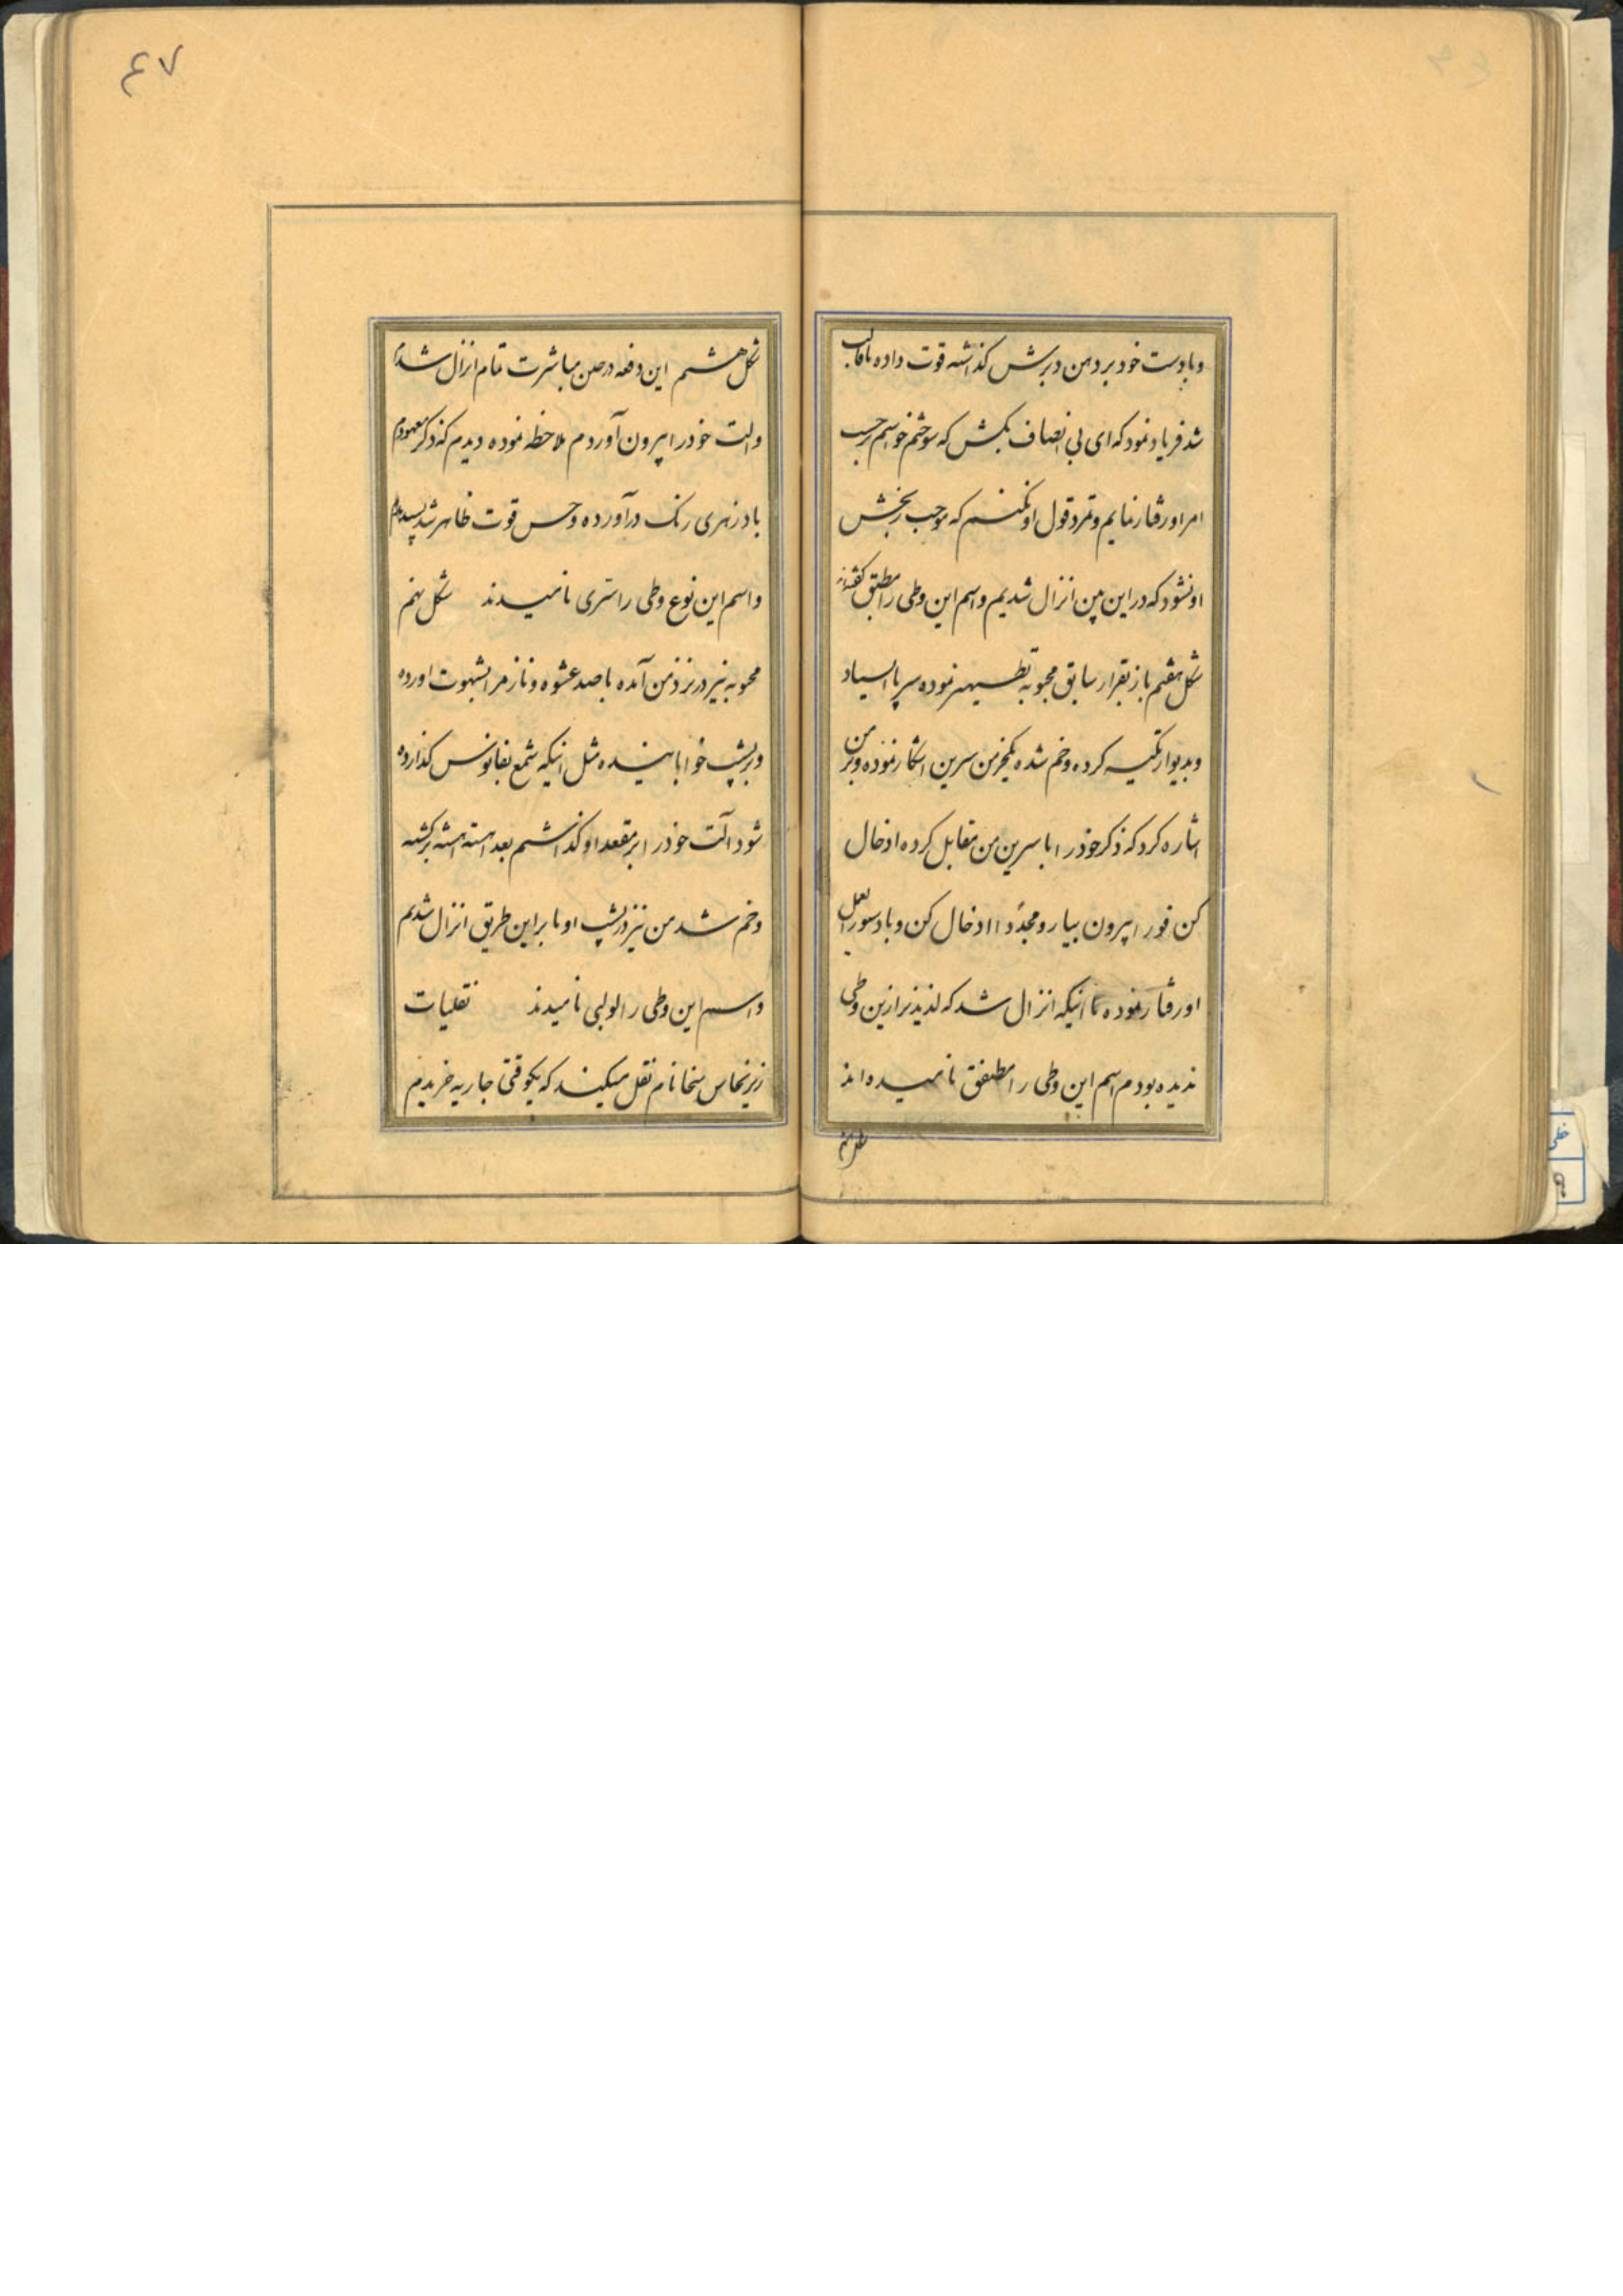 و با دست خود بر دهن دبرش کذاشته قوت داده تا قالب
شد فریاد نمود که ای بی انصاف بکش که سوختم خواستم حسب
امر او رفتار نمایم و تمرد قول او نکنم که موجب رنجش
او نشود که در این بین انزال شدیم و اسم این وطی را مطبق گفته‌اند
شکل هفتم باز بقرار سابق محبوبه تطهیر نموده سر پا ایستاد
و بدیوار تکیه کرده و خم شده یکخرمن سرین اشکار نموده و بمن
اشاره کرد که ذکر خود را با سرین من مقابل کرده ادخال
کن فورا بیرون بیار و مجدّدا ادخال کن و بادستور العمل
او رفتار نموده تا اینکه انزال شد که لذیذتر ازین وطی
ندیده بودم اسم این وطی را مطبفق نامیده اند
شکل هشتم
شکل هشتم این دفعه در حین مباشرت تمام انزال شده
و الت خود را بیرون آوردم ملاحظه نموده دیدم که ذکر معهودم
بادزهری رنک در آورده و حس قوت ظاهر شد
و اسم این نوع وطی را ستری نامیدند شکل نهم
محبوبه نیز در نزد من آمده با صد عشوه و ناز مرا بشهوت اورده
و بر پشت خوابانیده مثل اینکه شمع بفانوس کذارده
شود آلت خود را بر مقعد او کذاشتم بعد اهسته اهسته برکشته
و خم شد من نیز در پشت او تا بر این طریق انزال شدیم
و اسم این وطی را لولبی نامیدند نقلیات
نام نقل میکند که یکوقتی جاریه خریدم
۴۷